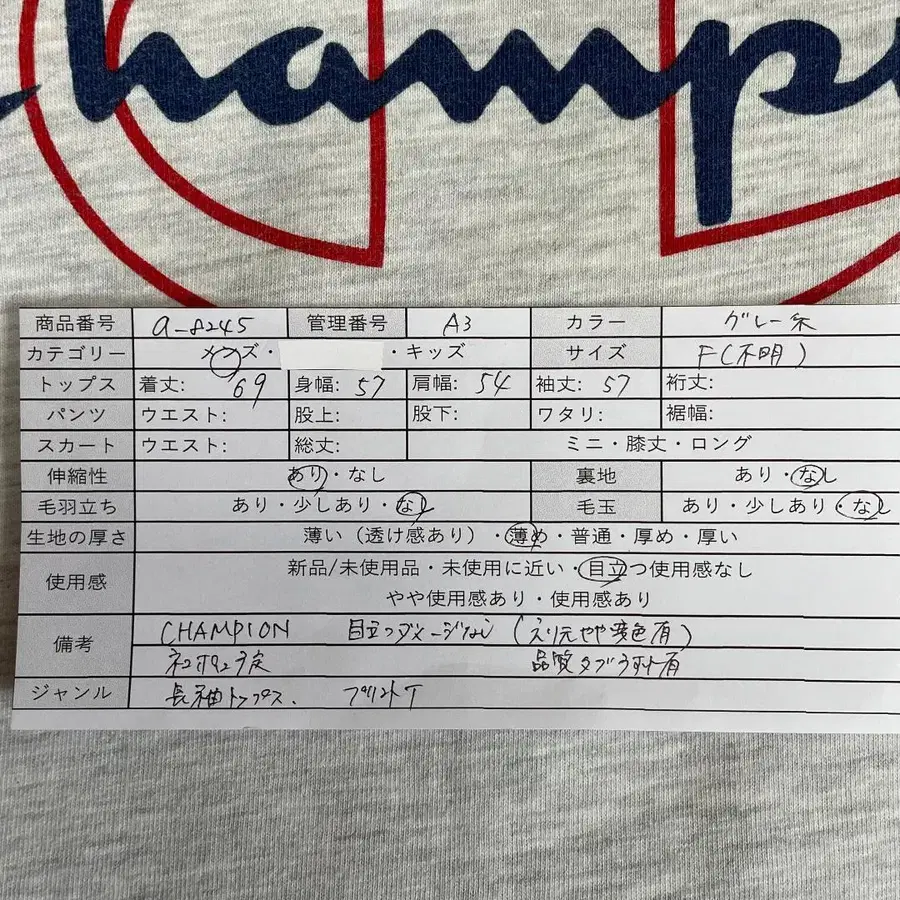 Champion
商品番号 a-8245 管理番号 A3 カラー グレー系
カテゴリー メンズ・ ・キッズ サイズ F(不明)
トップス 着丈: 69 身幅: 57 肩幅: 54 袖丈: 57 裄丈:
パンツ ウエスト: 股上: 股下: ワタリ: 裾幅:
スカート ウエスト: 総丈: ミニ・膝丈・ロング
伸縮性 あり・なし 裏地 あり・なし
毛羽立ち あり・少しあり・なし 毛玉 あり・少しあり・なし
生地の厚さ 薄い（透け感あり）・薄め・普通・厚め・厚い
使用感 新品/未使用品・未使用に近い・目立つ使用感なし
やや使用感あり・使用感あり
備考 CHAMPION 目立つダメージなし (えり元やや変色有)
品質タブ
ジャンル 長袖トップス. プリントT